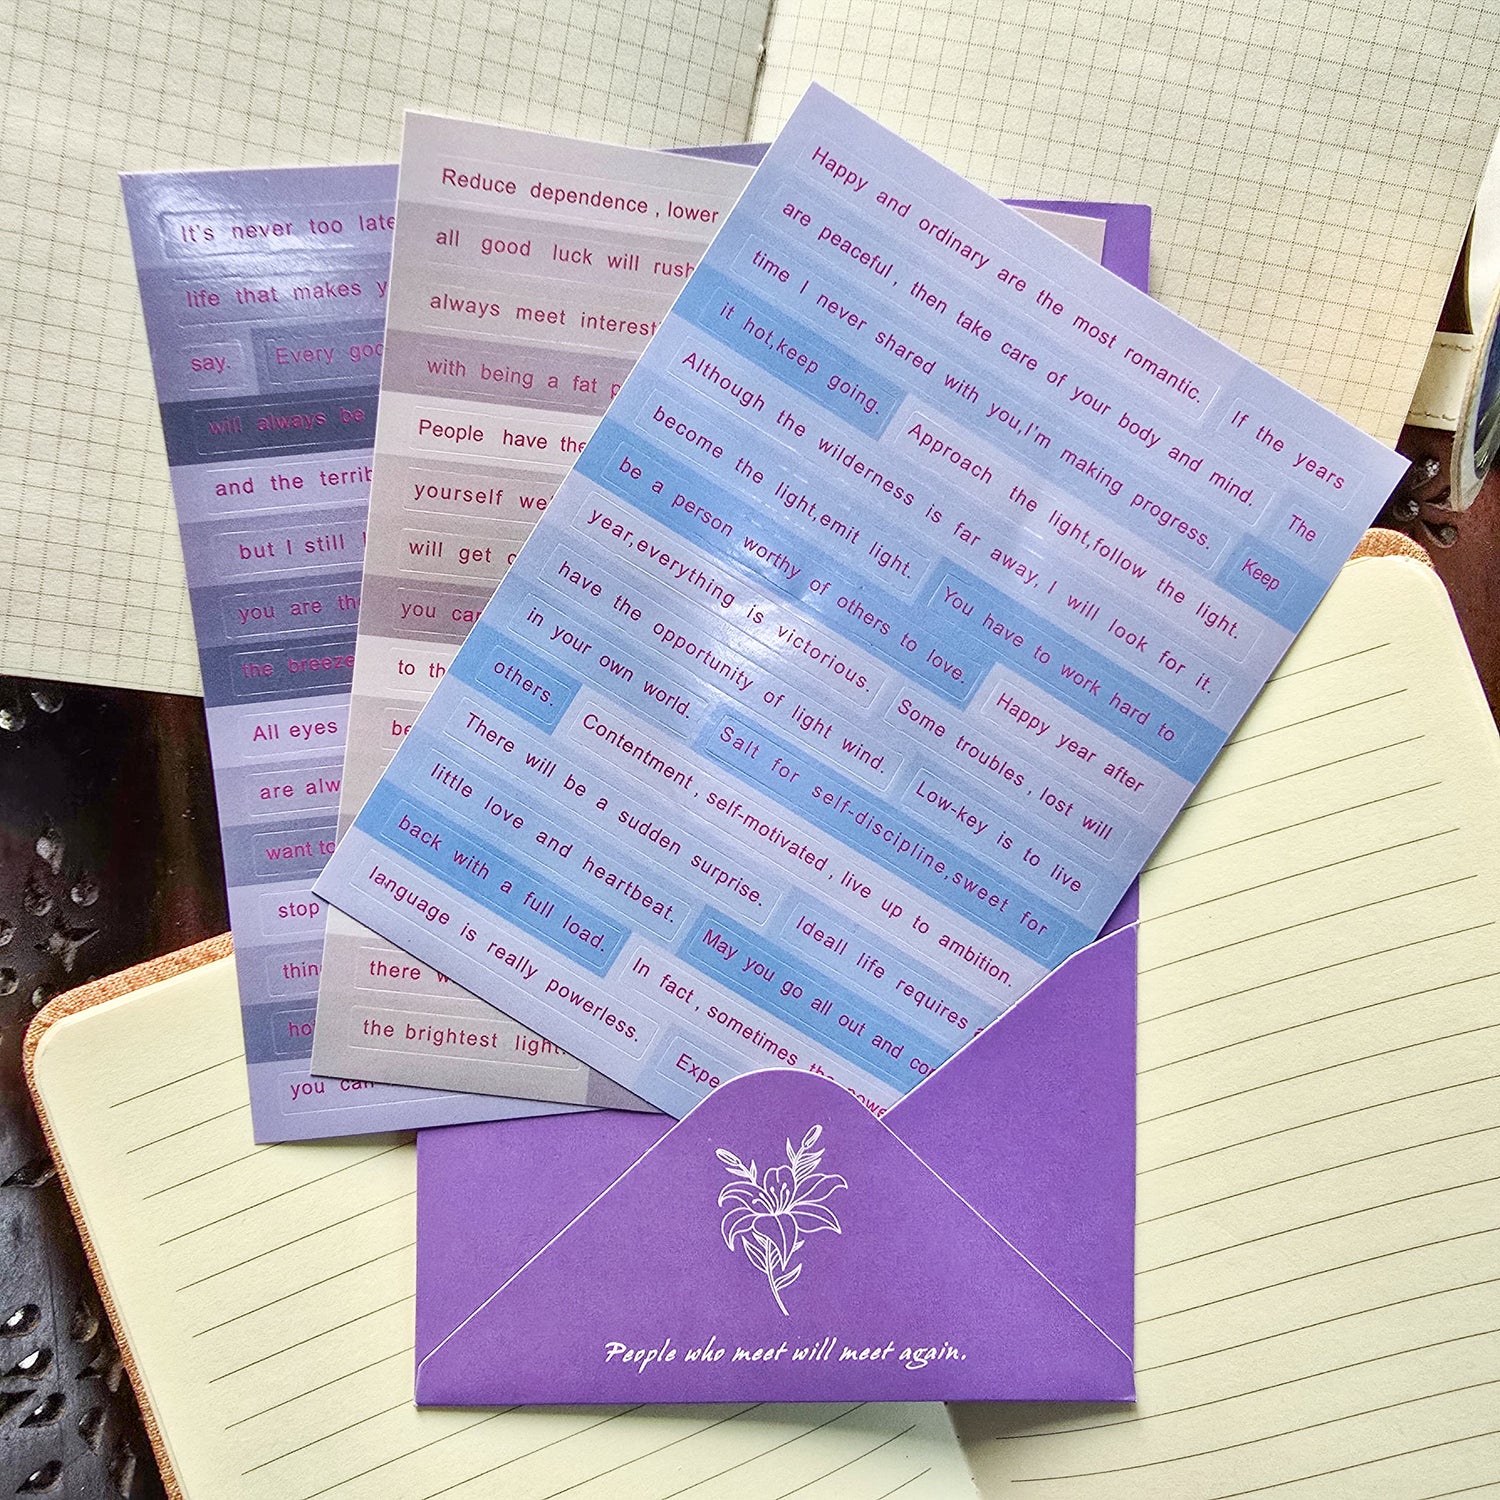 It's never too late
life that makes
say. Every
will always be
and the
but I still
you are
the breeze
All eyes
are
want to
stop
you can
Reduce dependence , lower
all good luck will rush
always meet
with being a fat
People have the
yourself
will get
you
to
there
the brightest light.
Happy and ordinary are the most romantic. If the years
are peaceful , then take care of your body and mind. The
time I never shared with you,I'm making progress. Keep
it hot,keep going. Approach the light,follow the light.
Although the wilderness is far away, I will look for it.
become the light,emit light. You have to work hard to
be a person worthy of others to love. Happy year after
year,everything is victorious. Some troubles , lost will
have the opportunity of light wind. Low-key is to live
in your own world. Salt for self-discipline,sweet for
others. Contentment , self-motivated , live up to ambition.
There will be a sudden surprise. Ideall life requires
little love and heartbeat. May you go all out and
back with a full load. In fact , sometimes the
language is really powerless.
People who meet will meet again.